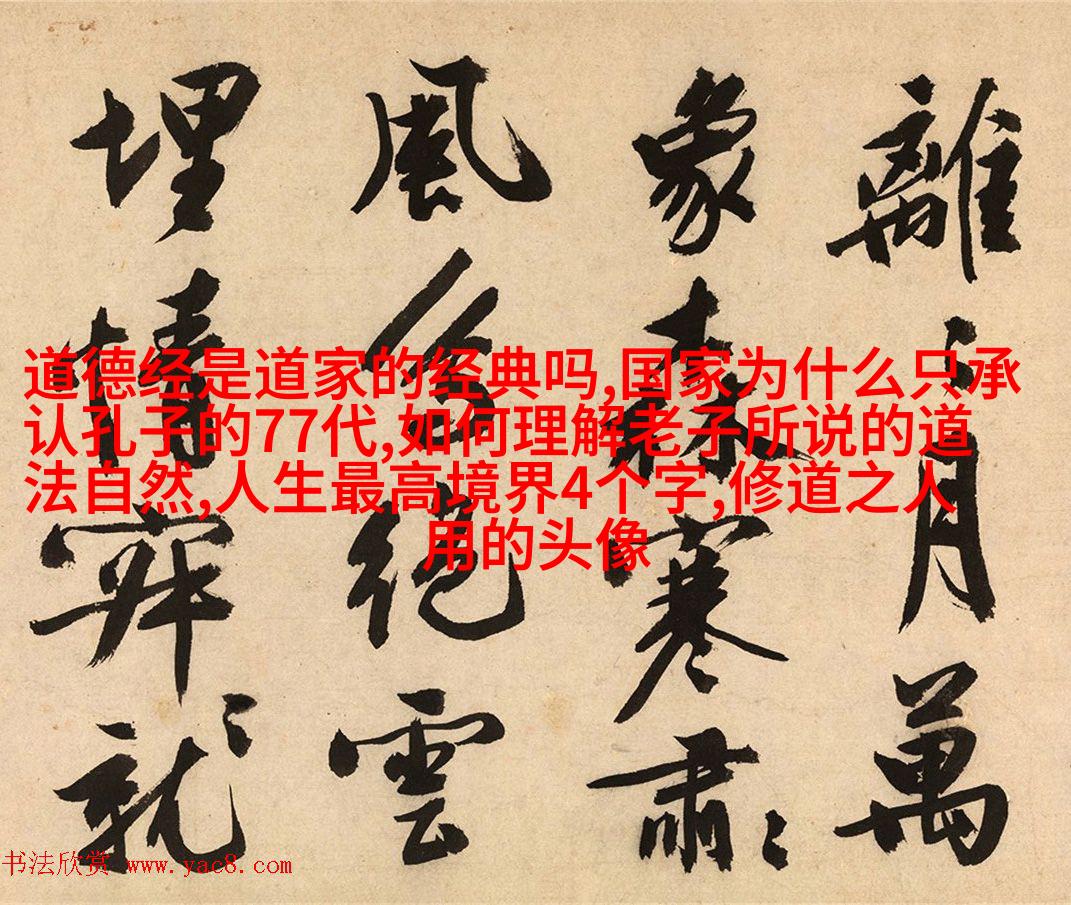 離〻月萬
象森寒肅〻
風絕雲
埋就〻
道德经是道家的经典吗,国家为什么只承
认孔子的77代,如何理解老子所说的道
法自然,人生最高境界4个字,修道之人
用的头像
书法欣赏 www.yac8.com